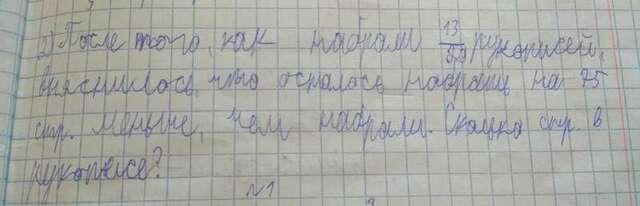 2) После того, как набрали 13/50 рукописей,
выяснилось, что осталось набрать на 75
стр. меньше, чем набрали. Сколько стр. в
рукописе?
№1